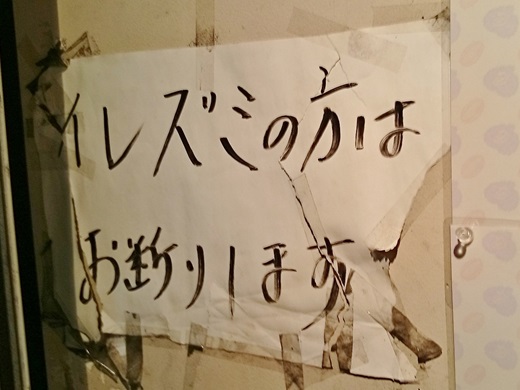 イレズミの方は
お断りします